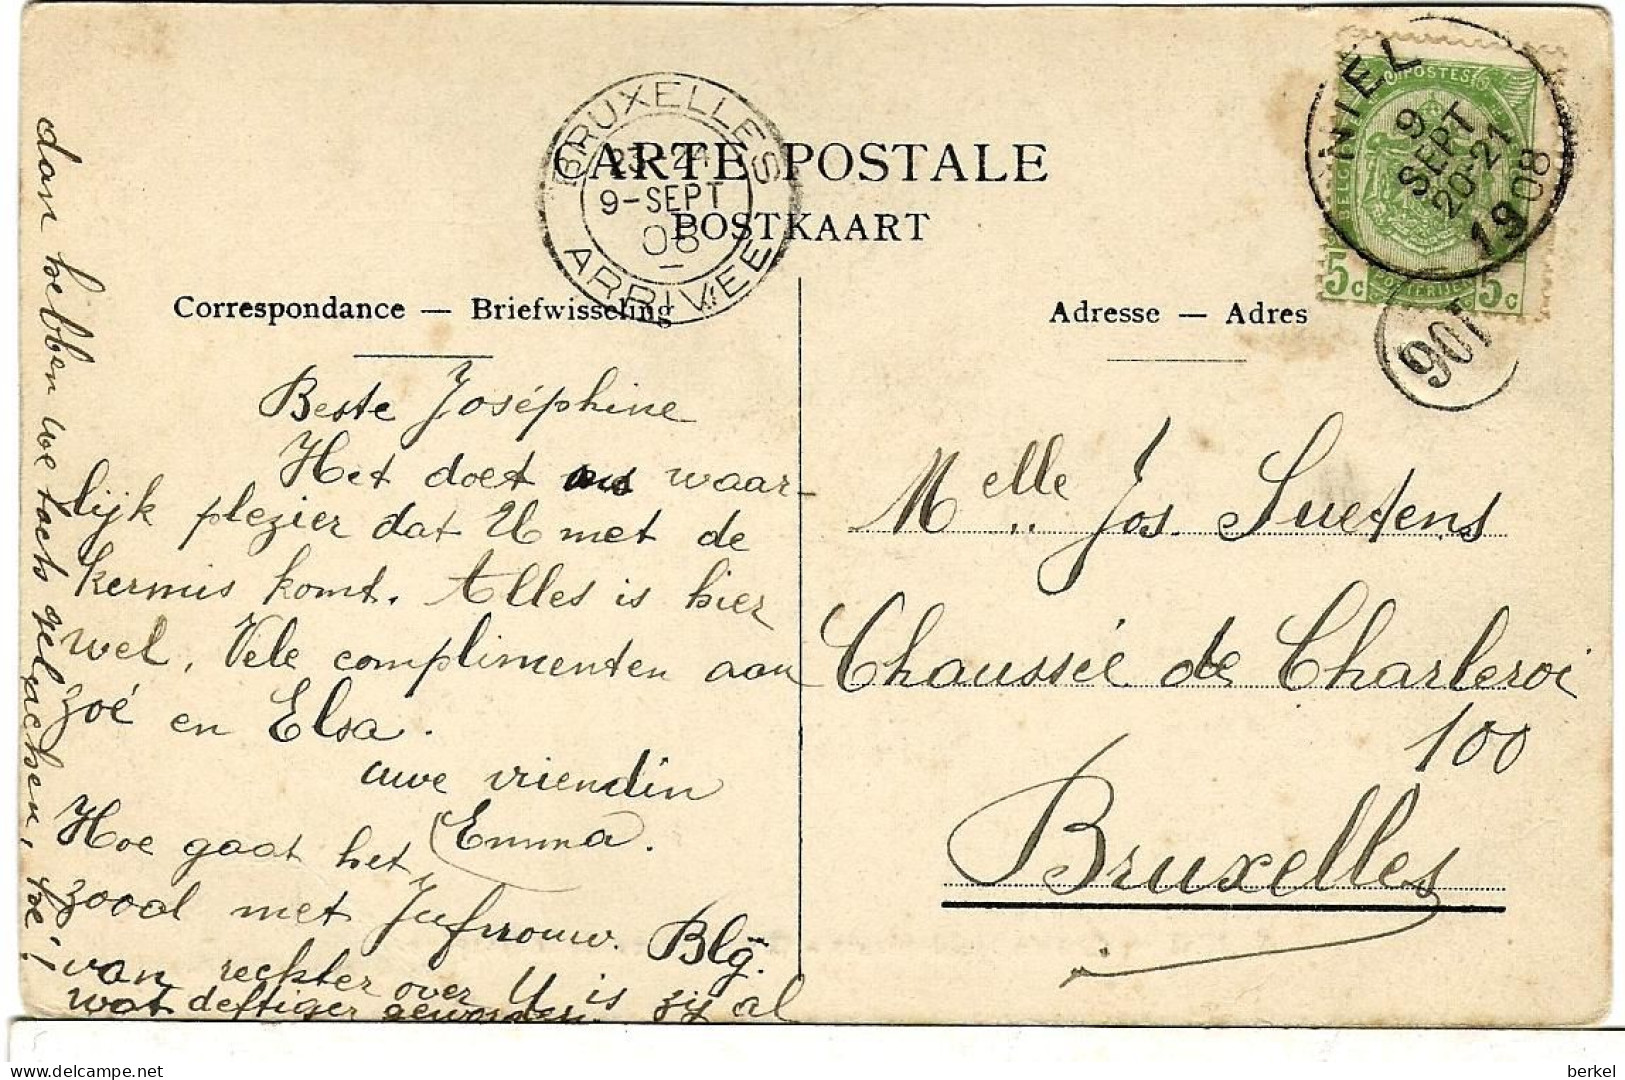 CARTE POSTALE
POSTKAART
Correspondance — Briefwisseling
Adresse — Adres
BRUXELLES
23-24
9-SEPT
08
ARRIVÉE
NIEL
9
SEPT
20-21
1908
POSTES
5c 5c
106
Beste Joséphine
Het doet ons waar-
lijk plezier dat U met de
kermis komt. Alles is hier
wel. Vele complimenten aan
Zoé en Elsa.
uwe vriendin
Emma.
Hoe gaat het
zooal met Jufrouw. Blg.
van rechter over U is zij al
wat deftiger geworden.
dan hebben we toch gelachen, hé!
Melle Jos. Suetens
Chaussée de Charleroi
100
Bruxelles
berkel